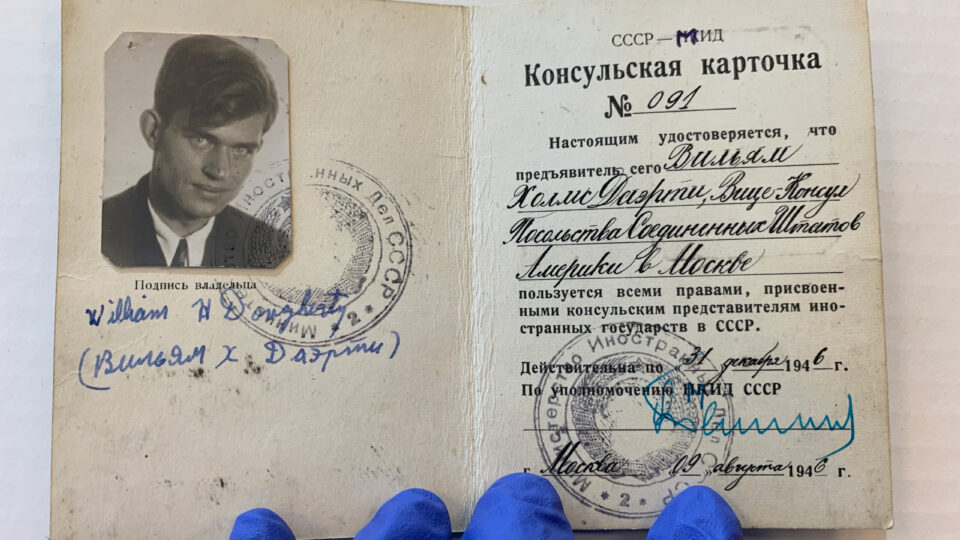 Подпись владельца
William H Dougherty
(Вильям Х Даэрти)
Министерство Иностранных Дел СССР
* 2 *
СССР — МИД
Консульская карточка
№ 091
Настоящим удостоверяется, что
предъявитель сего Вильям
Холмс Даэрти, Вице-Консул
Посольства Соединенных Штатов
Америки в Москве
пользуется всеми правами, присвоен-
ными консульским представителям ино-
странных государств в СССР.
Действительна по „31„ декабря 1946 г.
По уполномочению МИД СССР
г. Москва „09„ августа 1946 г.
Министерство Иностранных Дел СССР
* 2 *